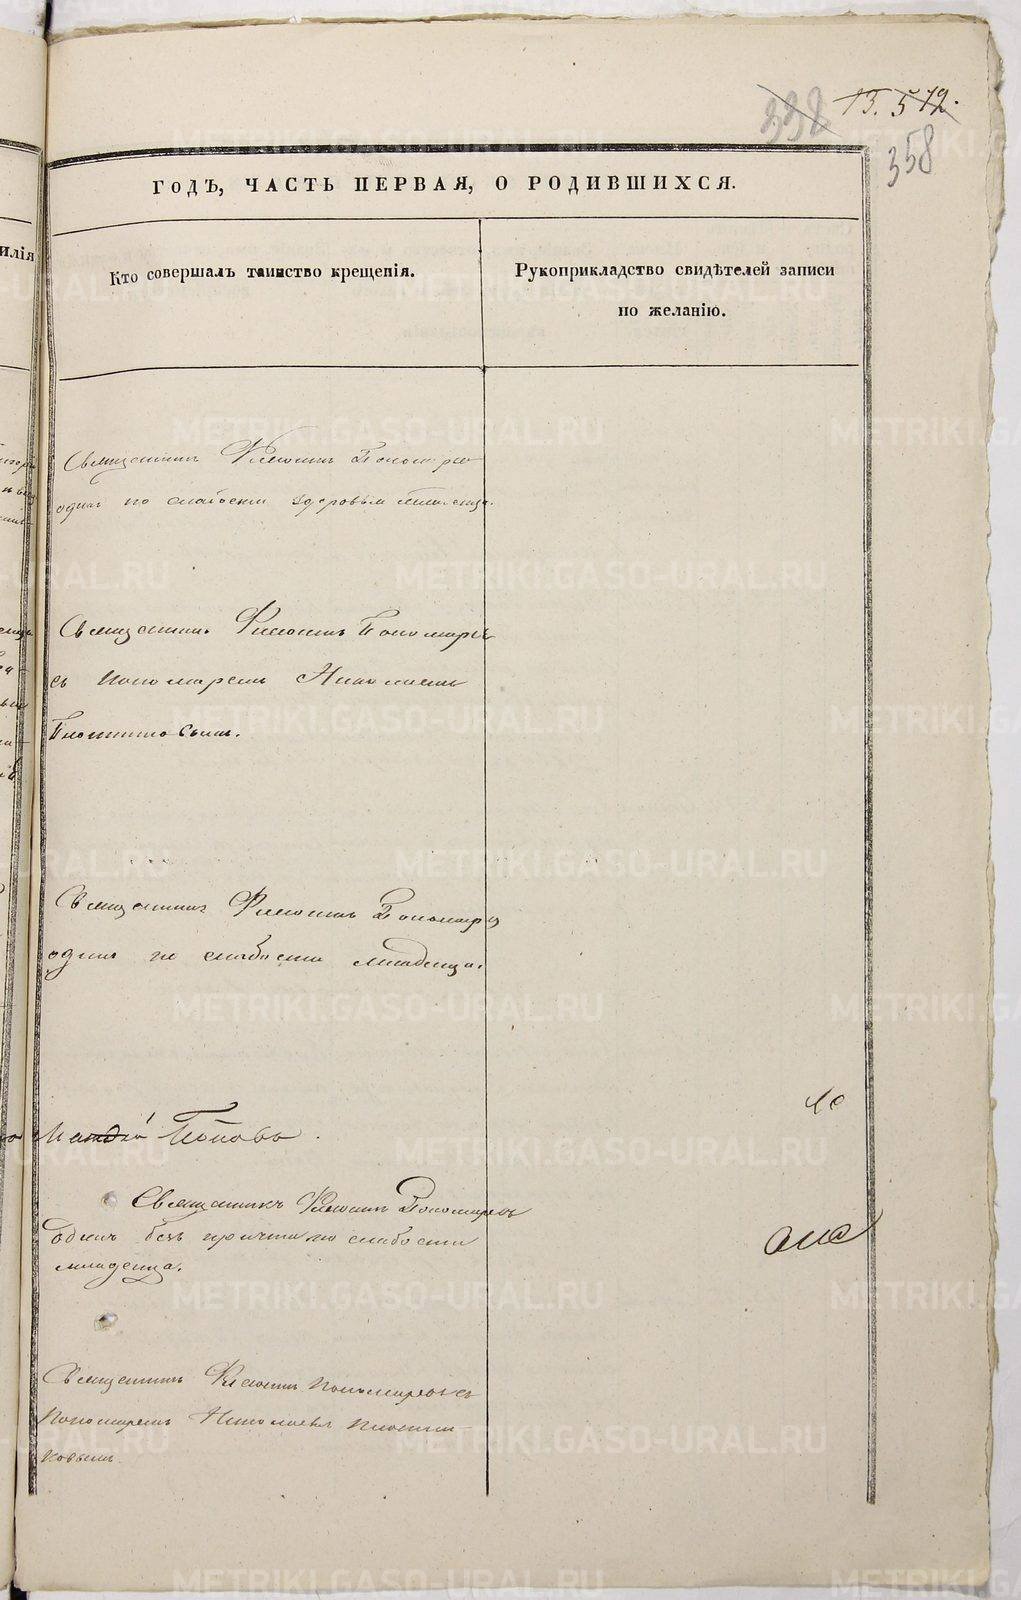 338 13.512.
358
ГОДЪ, ЧАСТЬ ПЕРВАЯ, О РОДИВШИХСЯ.
илія
Кто совершалъ таинство крещенія.
Рукоприкладство свидѣтелей записи
по желанію.
Священникъ Филонинъ
одинъ по слабости здоровья младенца.
Священникъ Филонинъ Пономаревъ
съ пономаремъ Николаемъ
Плотниковымъ.
Священникъ Филонинъ Пономаревъ
одинъ по слабости младенца.
Попова
Священникъ Филонинъ Пономаревъ
одинъ безъ причта по слабости
младенца.
Священникъ Филонинъ Пономаревъ съ
пономаремъ Николаемъ Плотни-
ковымъ
METRIKI.GASO-URAL.RU